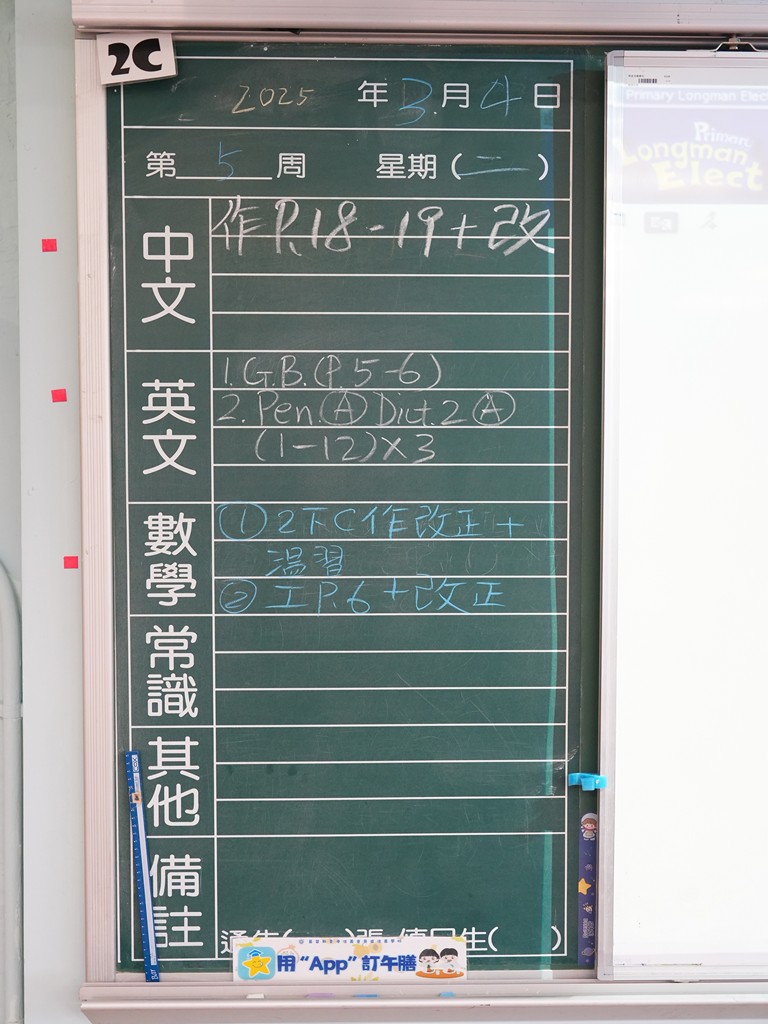 2C
2025 年 3 月 4 日
第 5 周 星期 (二)
中文
作 P.18-19 + 改
英文
1. G.B. (P. 5-6)
2. Pen. Ⓐ Dict. 2 Ⓐ
(1-12) x 3
數學
① 2下C作改正 +
溫習
② 工 P.6 + 改正
常識
其他
備註
通告( )張 值日生( )
用“App”訂午膳
Primary Longman Elect
Primary
Longman
Elect